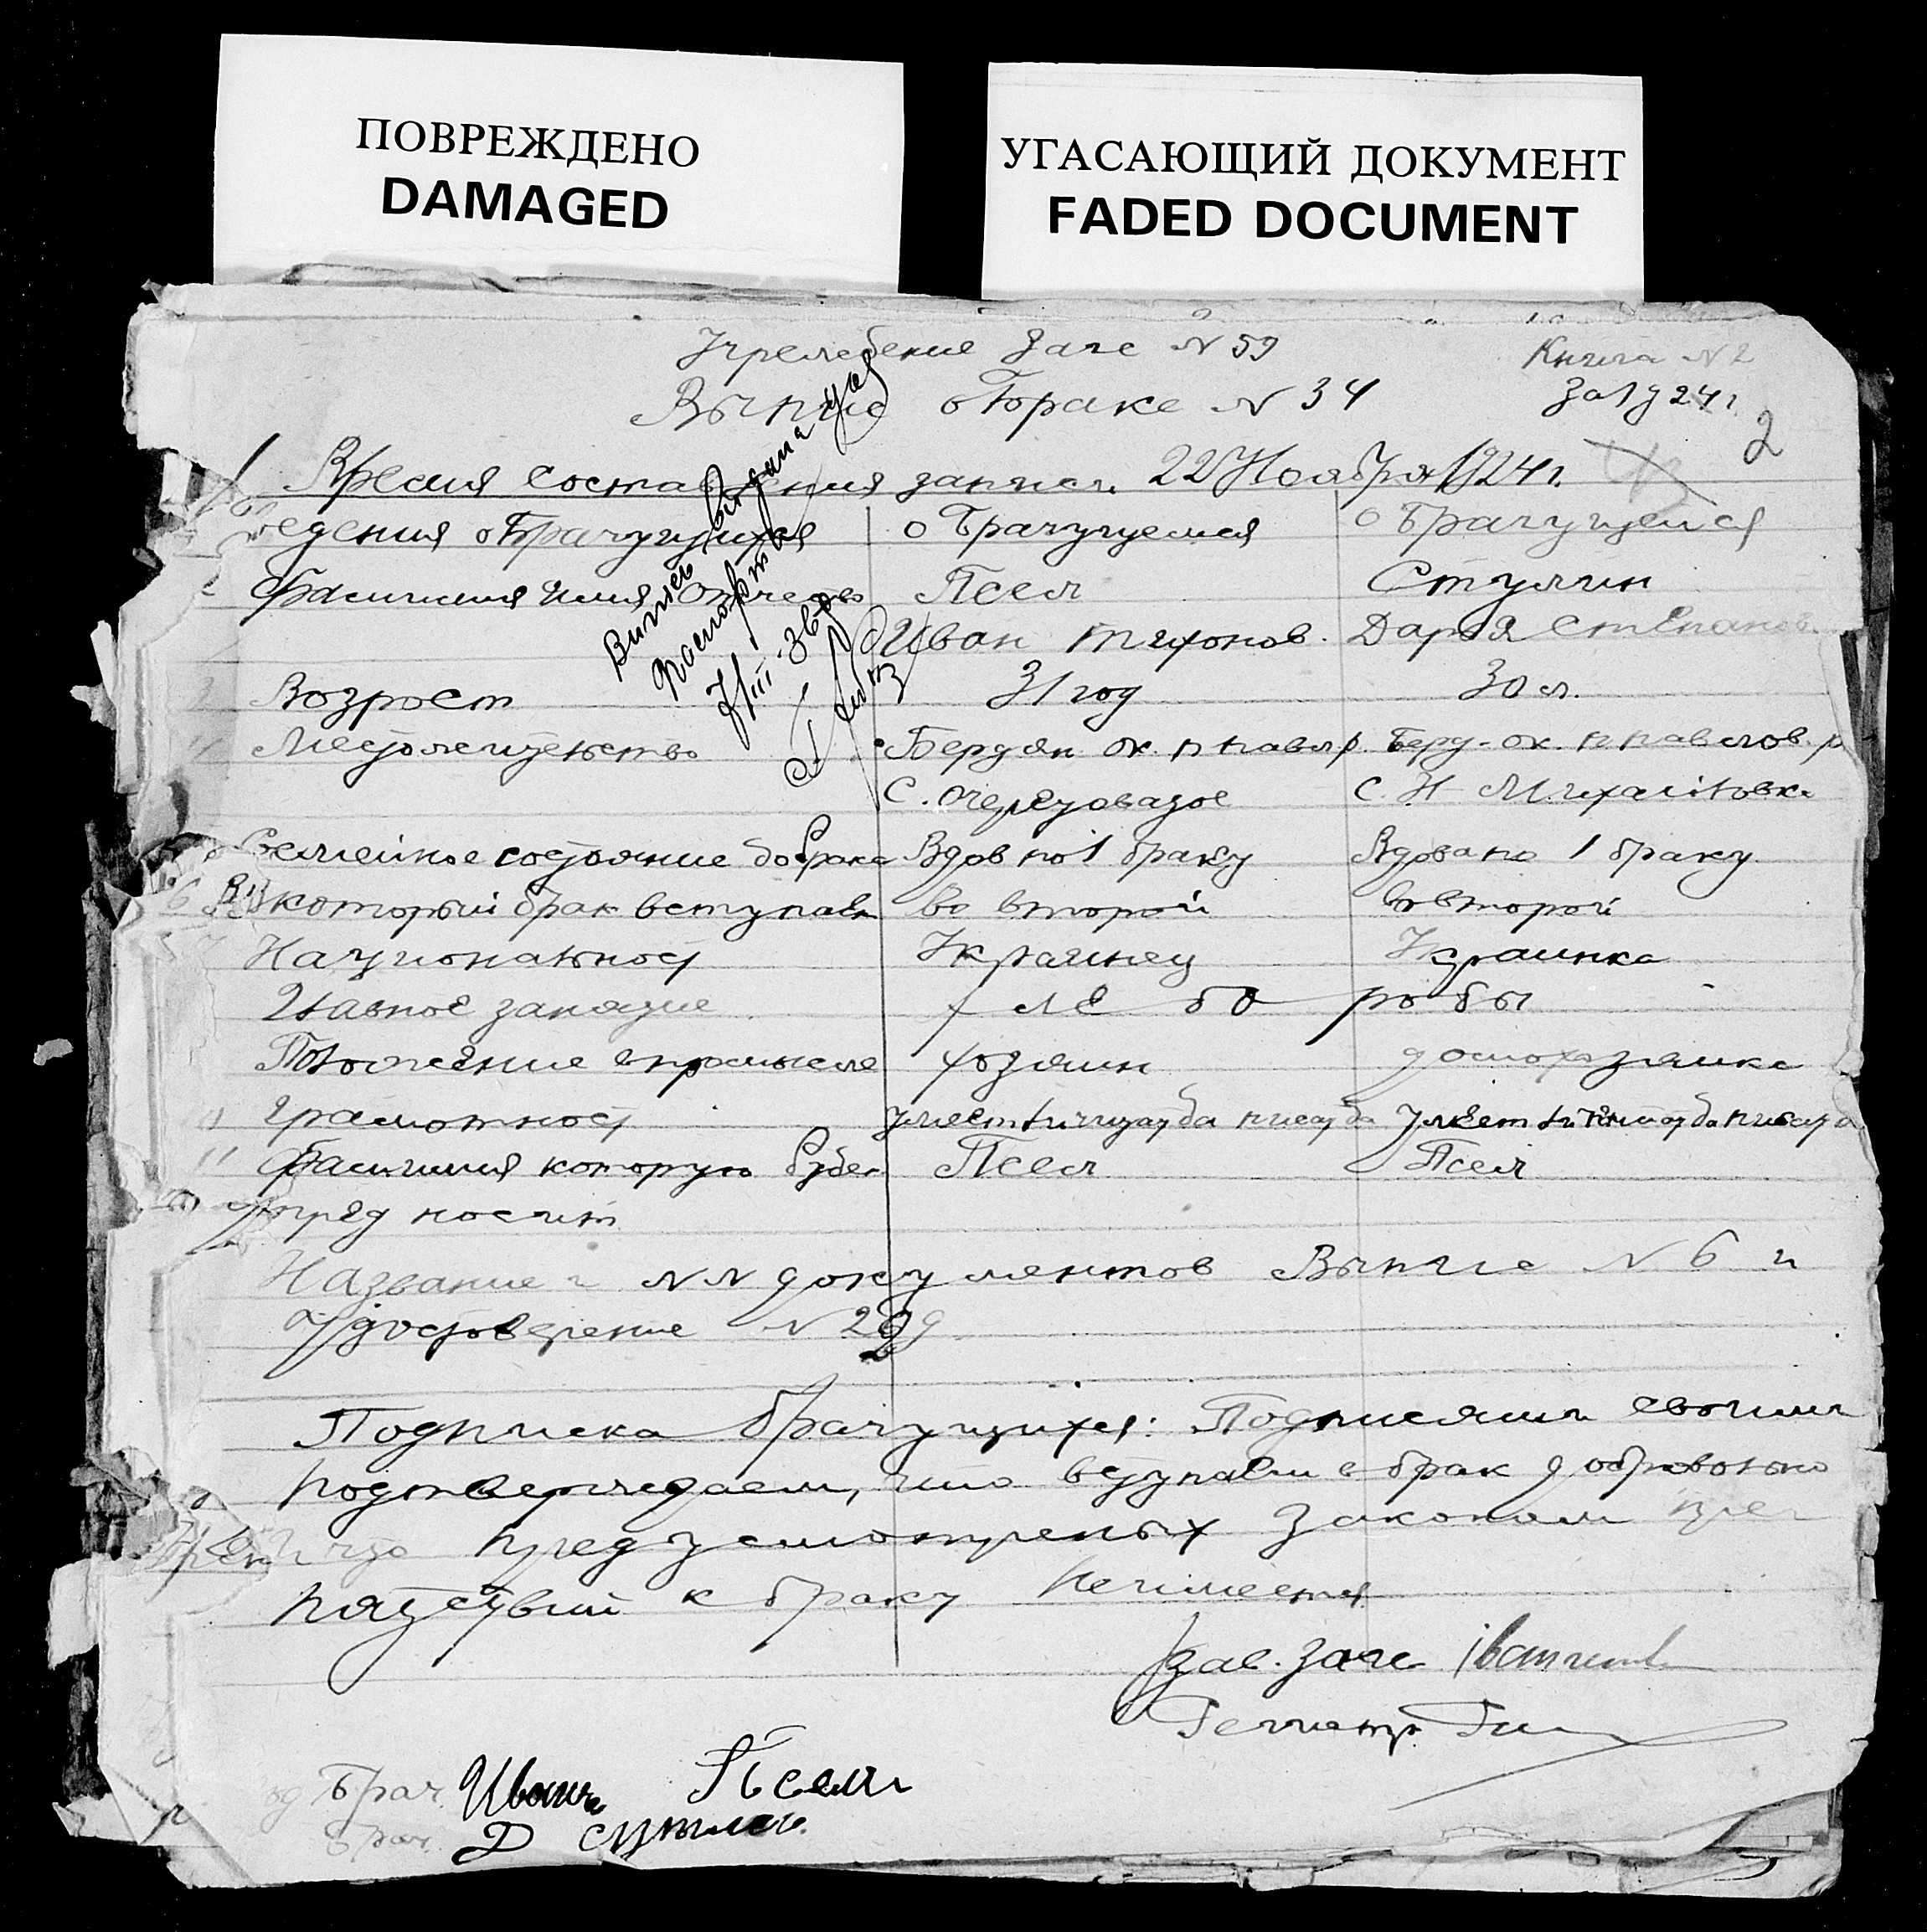 ПОВРЕЖДЕНО
DAMAGED
УГАСАЮЩИЙ ДОКУМЕНТ
FADED DOCUMENT
Загс N 59
Книга N 2
Выпис о браке N 34
за 1924 г.
2
Время составления записи 22 Ноября 1924 г.
едения о брачущихся
о брачущемся
о брачущейся
Фамилия Имя Отчество
Псел
Стулин
Иван Тихонов.
Дария Степанов.
Возрост
31 год
30 л.
Местожительство
Бердян ок. п павл р.
Берд-ок. п павлов. р
С. Очеретоватое
С. Н Михайловка
Семейное состояние до брака
Вдов по 1 браку
Вдова по 1 браку
6 В который брак вступает
во второй
во второй
Националност
Украинец
Украинка
Главное занятие
хлебо робы
Положение в промысле
хозяин
домохозяика
Грамотност
умеет читат да писат да
умеет читат да писат
11 Фамилия которую будет
Псел
Псел
впред носит
Название и NN документов Выпис N 6 и
Удостоверение N
Подписка брачущихся: Подписями своими
подтверждаем, что вступаем в брак добровольно
что предусмотреных законом преп
пятствий к браку не имеется
Зав. загс
Регистр.
Брач. Иван Псел
Брач. Д
Выпись выдана для
паспорта
7/III-36 г.